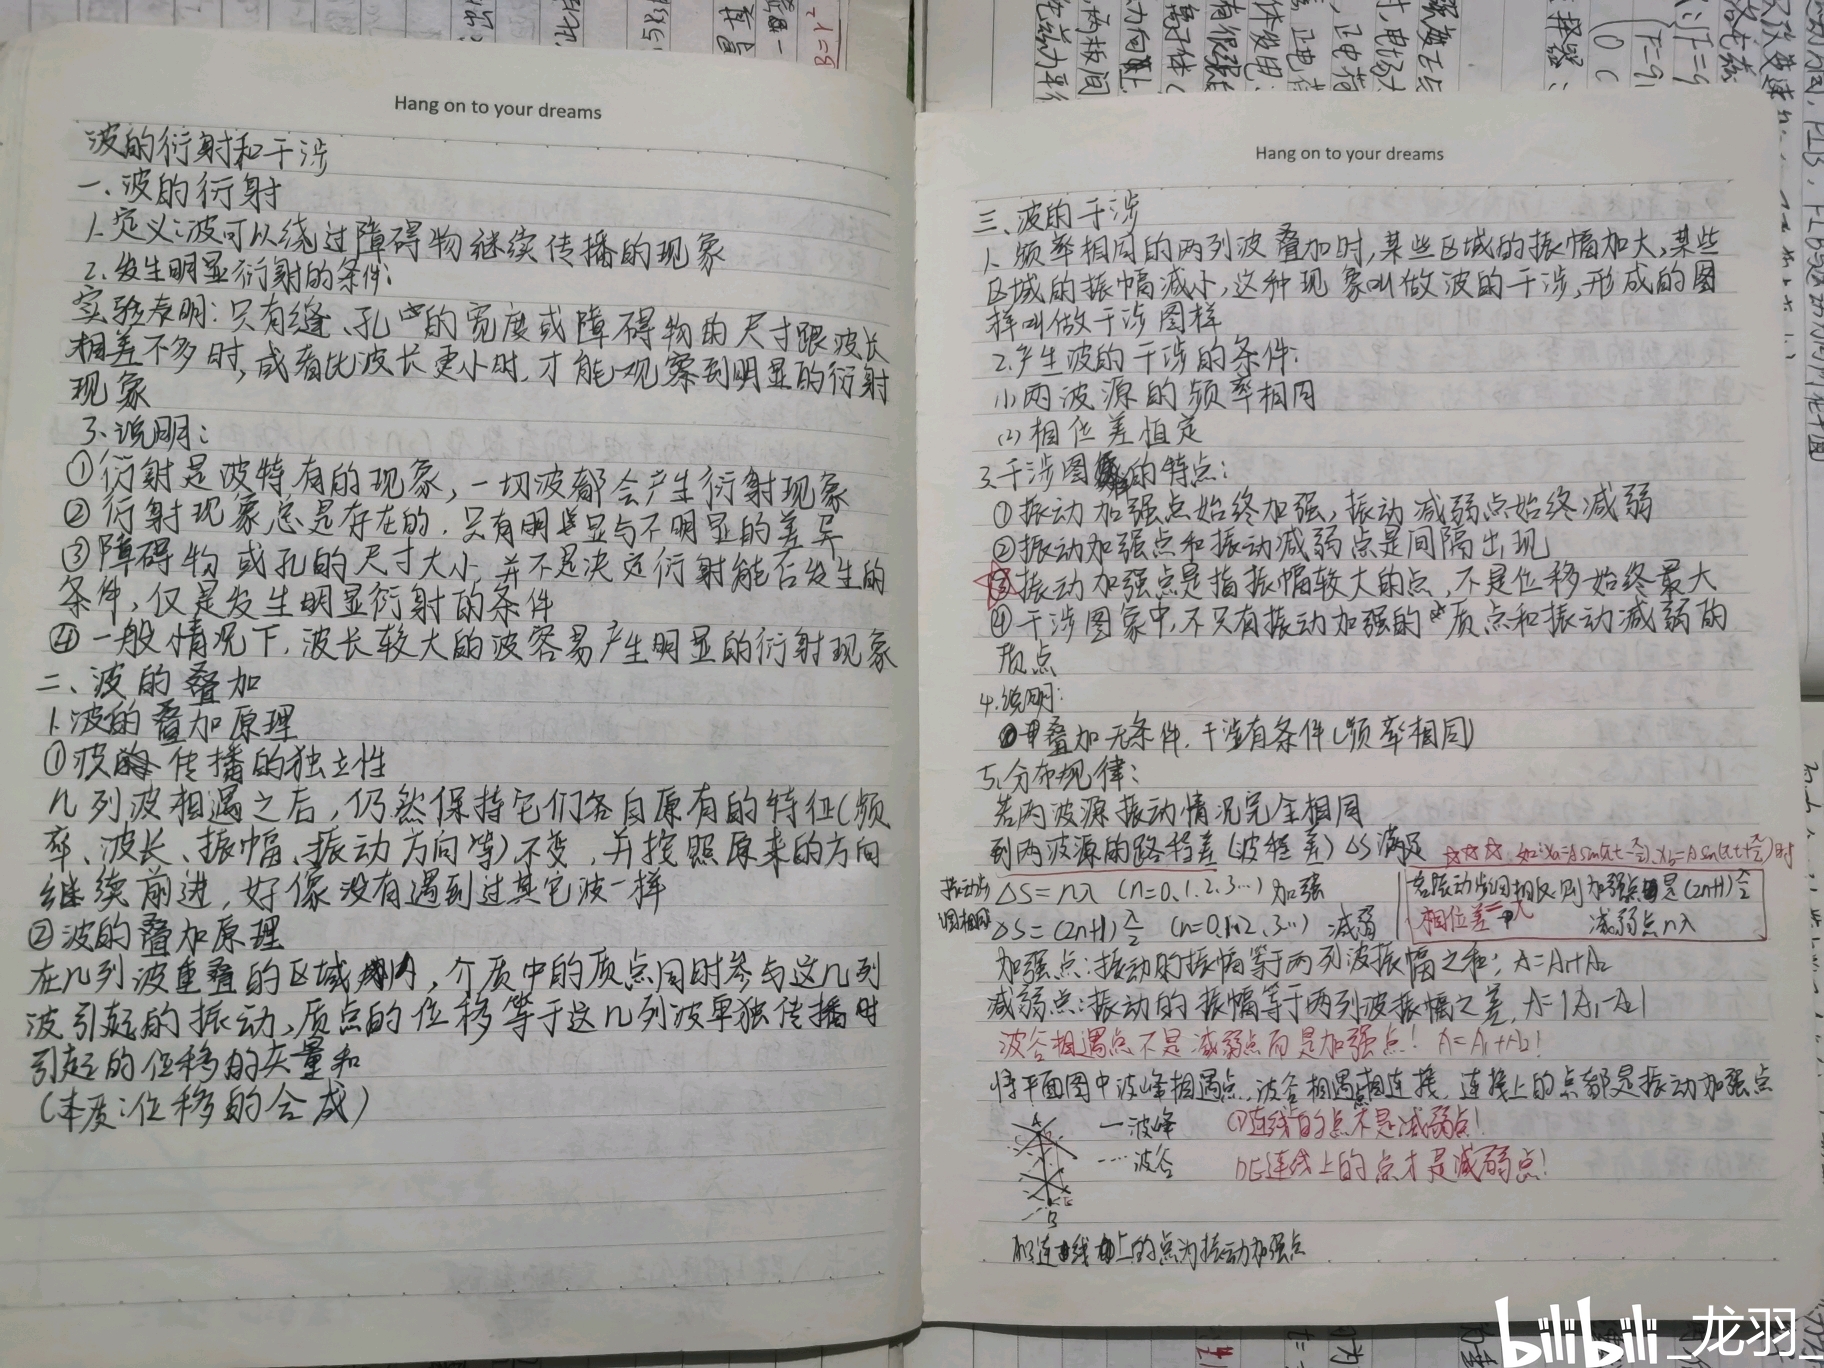 Hang on to your dreams
波的衍射和干涉
一、波的衍射
1.定义:波可以绕过障碍物继续传播的现象
2.发生明显衍射的条件:
实验表明:只有缝、孔的宽度或障碍物的尺寸跟波长
相差不多时,或者比波长更小时,才能观察到明显的衍射
现象
3.说明:
①衍射是波特有的现象,一切波都会产生衍射现象
②衍射现象总是存在的,只有明显与不明显的差异
③障碍物或孔的尺寸大小,并不是决定衍射能否发生的
条件,仅是发生明显衍射的条件
④一般情况下,波长较大的波容易产生明显的衍射现象
二、波的叠加
1.波的叠加原理
①波传播的独立性
几列波相遇之后,仍然保持它们各自原有的特征(频
率、波长、振幅、振动方向等)不变,并按照原来的方向
继续前进,好像没有遇到过其它波一样
②波的叠加原理
在几列波重叠的区域内,介质中的质点同时参与这几列
波引起的振动,质点的位移等于这几列波单独传播时
引起的位移的矢量和
(本质:位移的合成)
Hang on to your dreams
三、波的干涉
1.频率相同的两列波叠加时,某些区域的振幅加大,某些
区域的振幅减小,这种现象叫做波的干涉,形成的图
样叫做干涉图样
2.产生波的干涉的条件:
(1)两波源的频率相同
(2)相位差恒定
3.干涉图的特点:
①振动加强点始终加强,振动减弱点始终减弱
②振动加强点和振动减弱点是间隔出现
③振动加强点是指振幅较大的点,不是位移始终最大
④干涉图象中,不只有振动加强的质点和振动减弱的
质点
4.说明:
叠加无条件,干涉有条件(频率相同)
5.分布规律:
若两波源振动情况完全相同
到两波源的路程差(波程差)ΔS满足
振动步调相同 ΔS=nλ (n=0.1.2.3…) 加强
ΔS=(2n+1)λ/2 (n=0.1.2.3…) 减弱
若振动步调相反则加强点是(2n+1)λ/2
相位差=π 减弱点nλ
加强点:振动的振幅等于两列波振幅之和; A=A₁+A₂
减弱点:振动的振幅等于两列波振幅之差,A=|A₁-A₂|
波谷相遇点不是减弱点而是加强点! A=A₁+A₂!
将平面图中波峰相遇点,波谷相遇点相连接,连接上的点都是振动加强点
一波峰 连线上的点不是减弱点!
…波谷 连线上的点才是减弱点!
连线上的点为振动加强点
bilibili_龙羽_